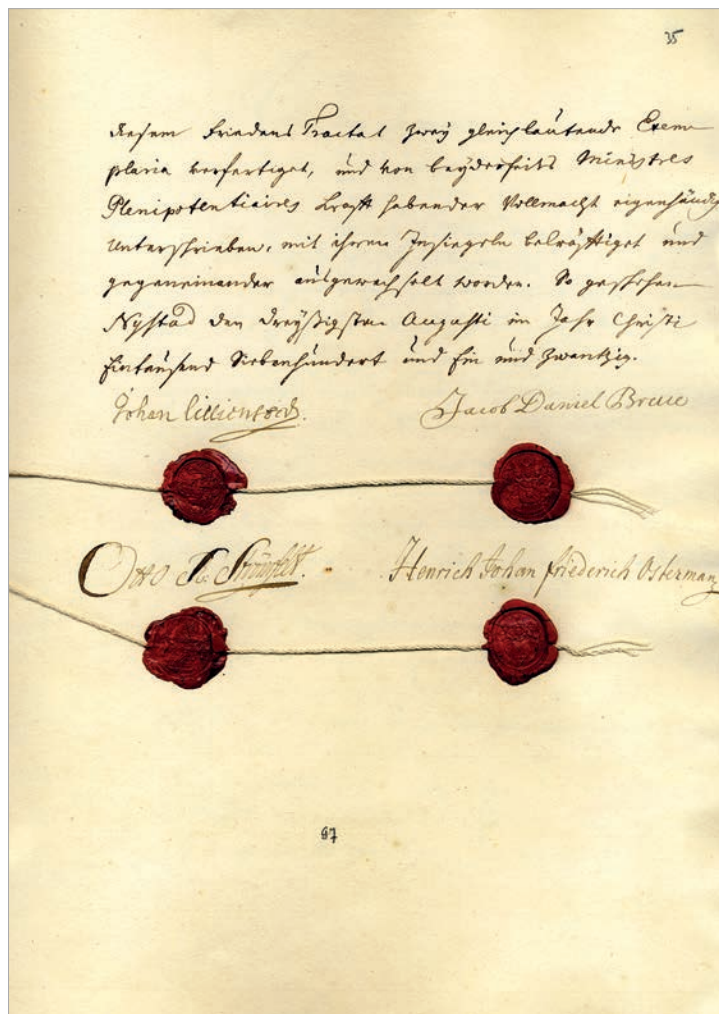 35
diesem Friedens Tractat zweÿ gleichlautende Exem
plaria verfertiget, und von beÿderseits Ministres
Plenipotentiaires Krafft habender Vollmacht eigenhändig
unterschrieben, mit ihren Insiegeln bekräfftiget und
gegeneinander ausgewechselt worden. So geschehen
Nystad den dreÿßigsten Augusti im Jahr Christi
Eintausend Siebenhundert und Ein und Zwantzig.
Johan Lillienstedt. Jacob Daniel Bruce
Otto R. Strömfelt. Henrich Johan friederich Osterman
87